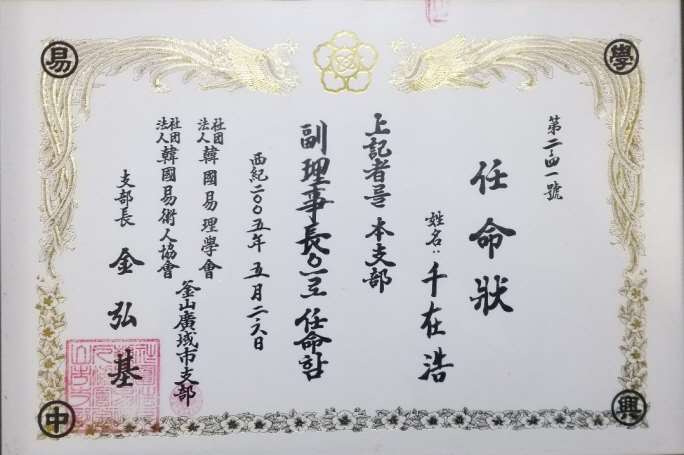 易
學
第二四一號
任命狀
姓名: 千在浩
上記者를 本支部
副理事長으로 任命함
西紀二○○五年 五月二六日
社団法人 韓國易理學會
社団法人 韓國易術人協會
釜山廣域市支部
支部長 金弘基
中
興